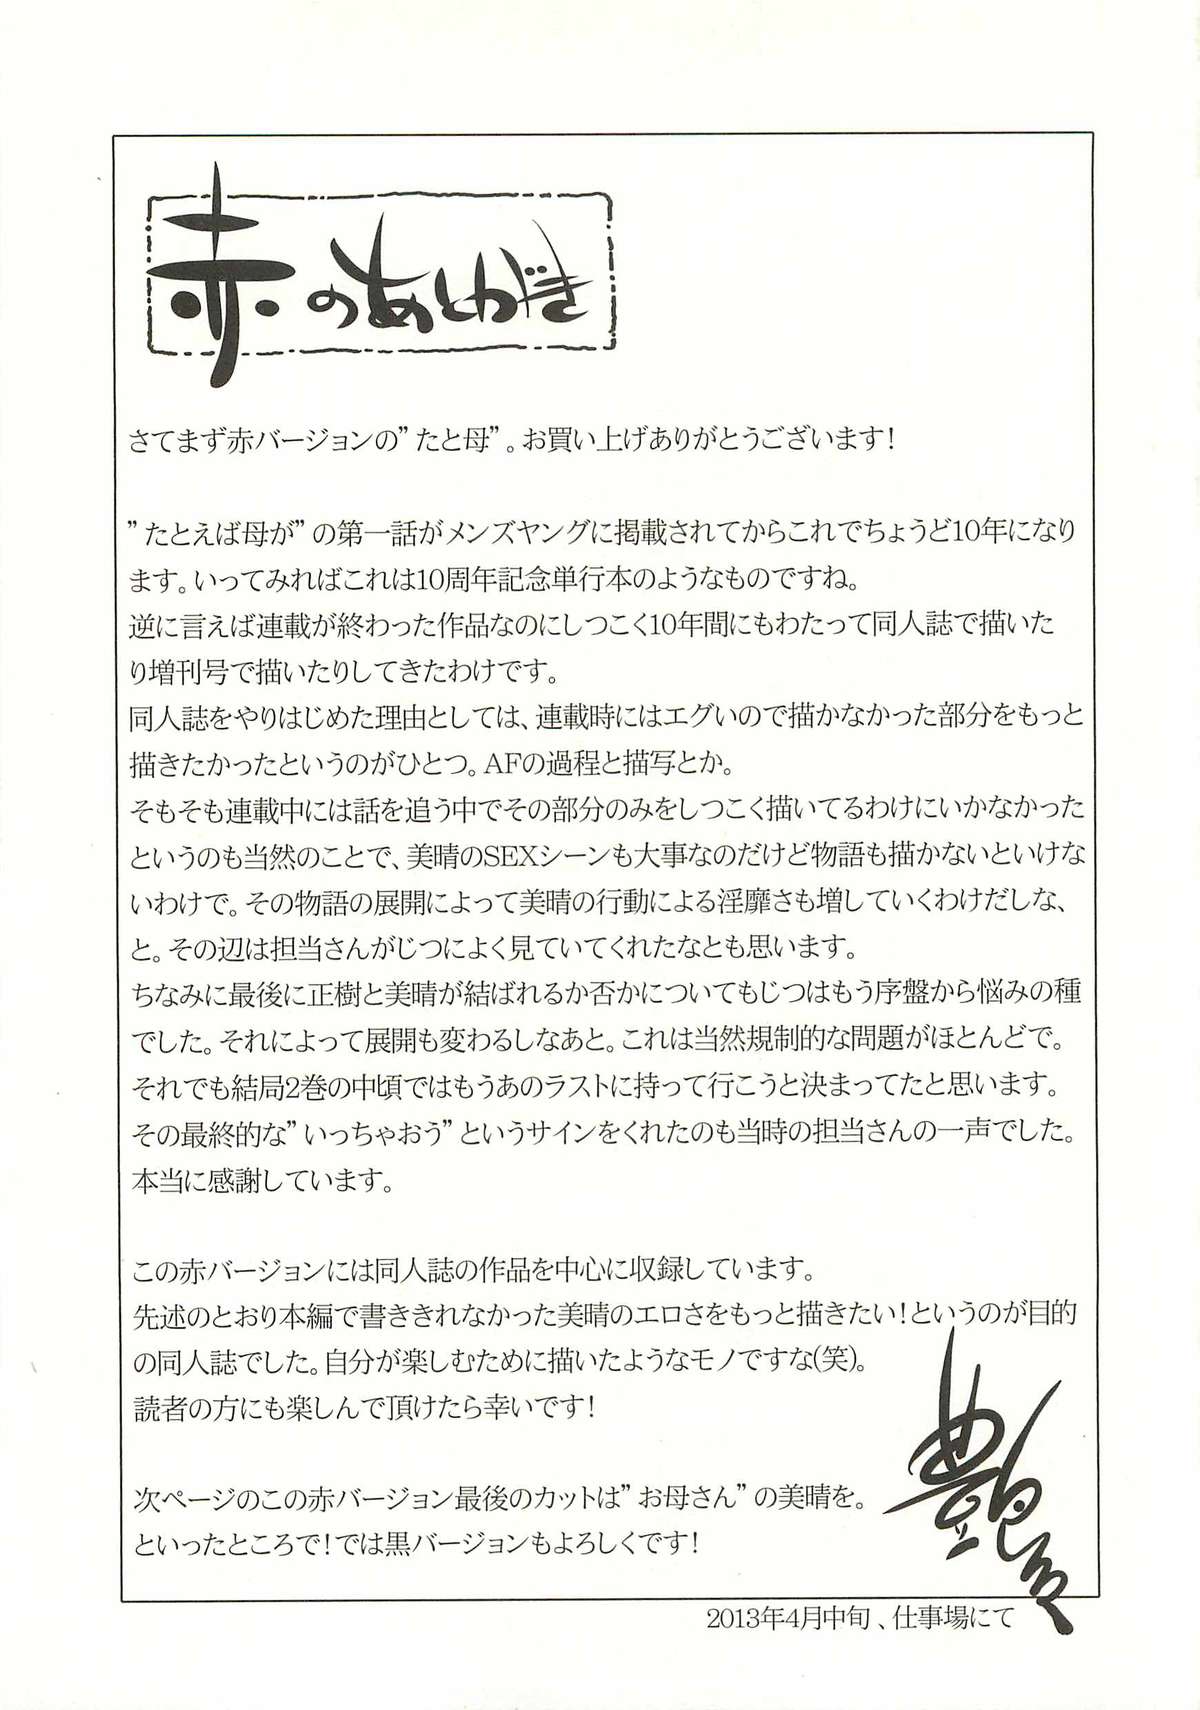 赤のあとがき
さてまず赤バージョンの”たと母”。お買い上げありがとうございます！
”たとえば母が”の第一話がメンズヤングに掲載されてからこれでちょうど10年になり
ます。いってみればこれは10周年記念単行本のようなものですね。
逆に言えば連載が終わった作品なのにしつこく10年間にもわたって同人誌で描いた
り増刊号で描いたりしてきたわけです。
同人誌をやりはじめた理由としては、連載時にはエグいので描かなかった部分をもっと
描きたかったというのがひとつ。AFの過程と描写とか。
そもそも連載中には話を追う中でその部分のみをしつこく描いてるわけにいかなかった
というのも当然のことで、美晴のSEXシーンも大事なのだけど物語も描かないといけな
いわけで。その物語の展開によって美晴の行動による淫靡さも増していくわけだしな、
と。その辺は担当さんがじつによく見ていてくれたなとも思います。
ちなみに最後に正樹と美晴が結ばれるか否かについてもじつはもう序盤から悩みの種
でした。それによって展開も変わるしなあと。これは当然規制的な問題がほとんどで。
それでも結局2巻の中頃ではもうあのラストに持って行こうと決まってたと思います。
その最終的な”いっちゃおう”というサインをくれたのも当時の担当さんの一声でした。
本当に感謝しています。
この赤バージョンには同人誌の作品を中心に収録しています。
先述のとおり本編で書ききれなかった美晴のエロさをもっと描きたい！というのが目的
の同人誌でした。自分が楽しむために描いたようなモノですな(笑)。
読者の方にも楽しんで頂けたら幸いです！
次ページのこの赤バージョン最後のカットは”お母さん”の美晴を。
といったところで！では黒バージョンもよろしくです！
艶々
2013年4月中旬、仕事場にて